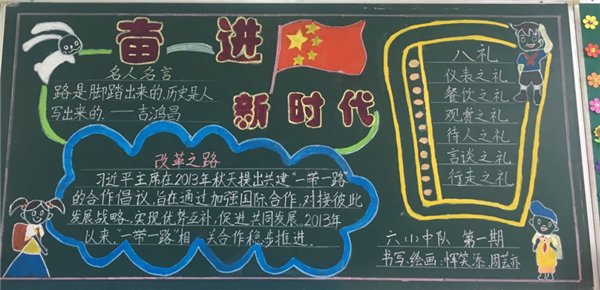 奋进
新时代
名人名言
路是脚踏出来的,历史是人
写出来的.——吉鸿昌
改革之路
习近平主席在2013年秋天提出共建“一带一路”
的合作倡议,旨在通过加强国际合作,对接彼此
发展战略,实现优势互补,促进共同发展.2013年
以来,“一带一路”相关合作稳步推进.
八礼
仪表之礼
餐饮之礼
观赏之礼
待人之礼
言谈之礼
行走之礼
六(1)中队 第一期
书写、绘画:恽笑添、周芸亦